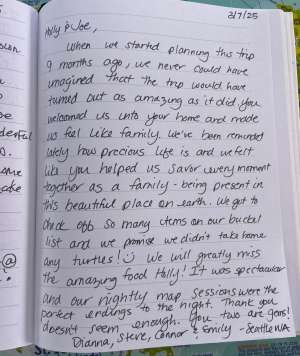 3/7/25
Holly & Joe,
When we started planning this trip
9 months ago, we never could have
imagined that the trip would have
turned out as amazing as it did. You
welcomed us into your home and made
us feel like family. We've been reminded
lately how precious life is and we felt
like you helped us savor every moment
together as a family - being present in
this beautiful place on earth. We got to
check off so many items on our bucket
list and we promise we didn't take home
any turtles! We will greatly miss
the amazing food Holly! It was spectacular
and our nightly map sessions were the
perfect endings to the night. Thank you
doesn't seem enough. You two are gems!
Dianna, Steve, Connor & Emily - Seattle WA